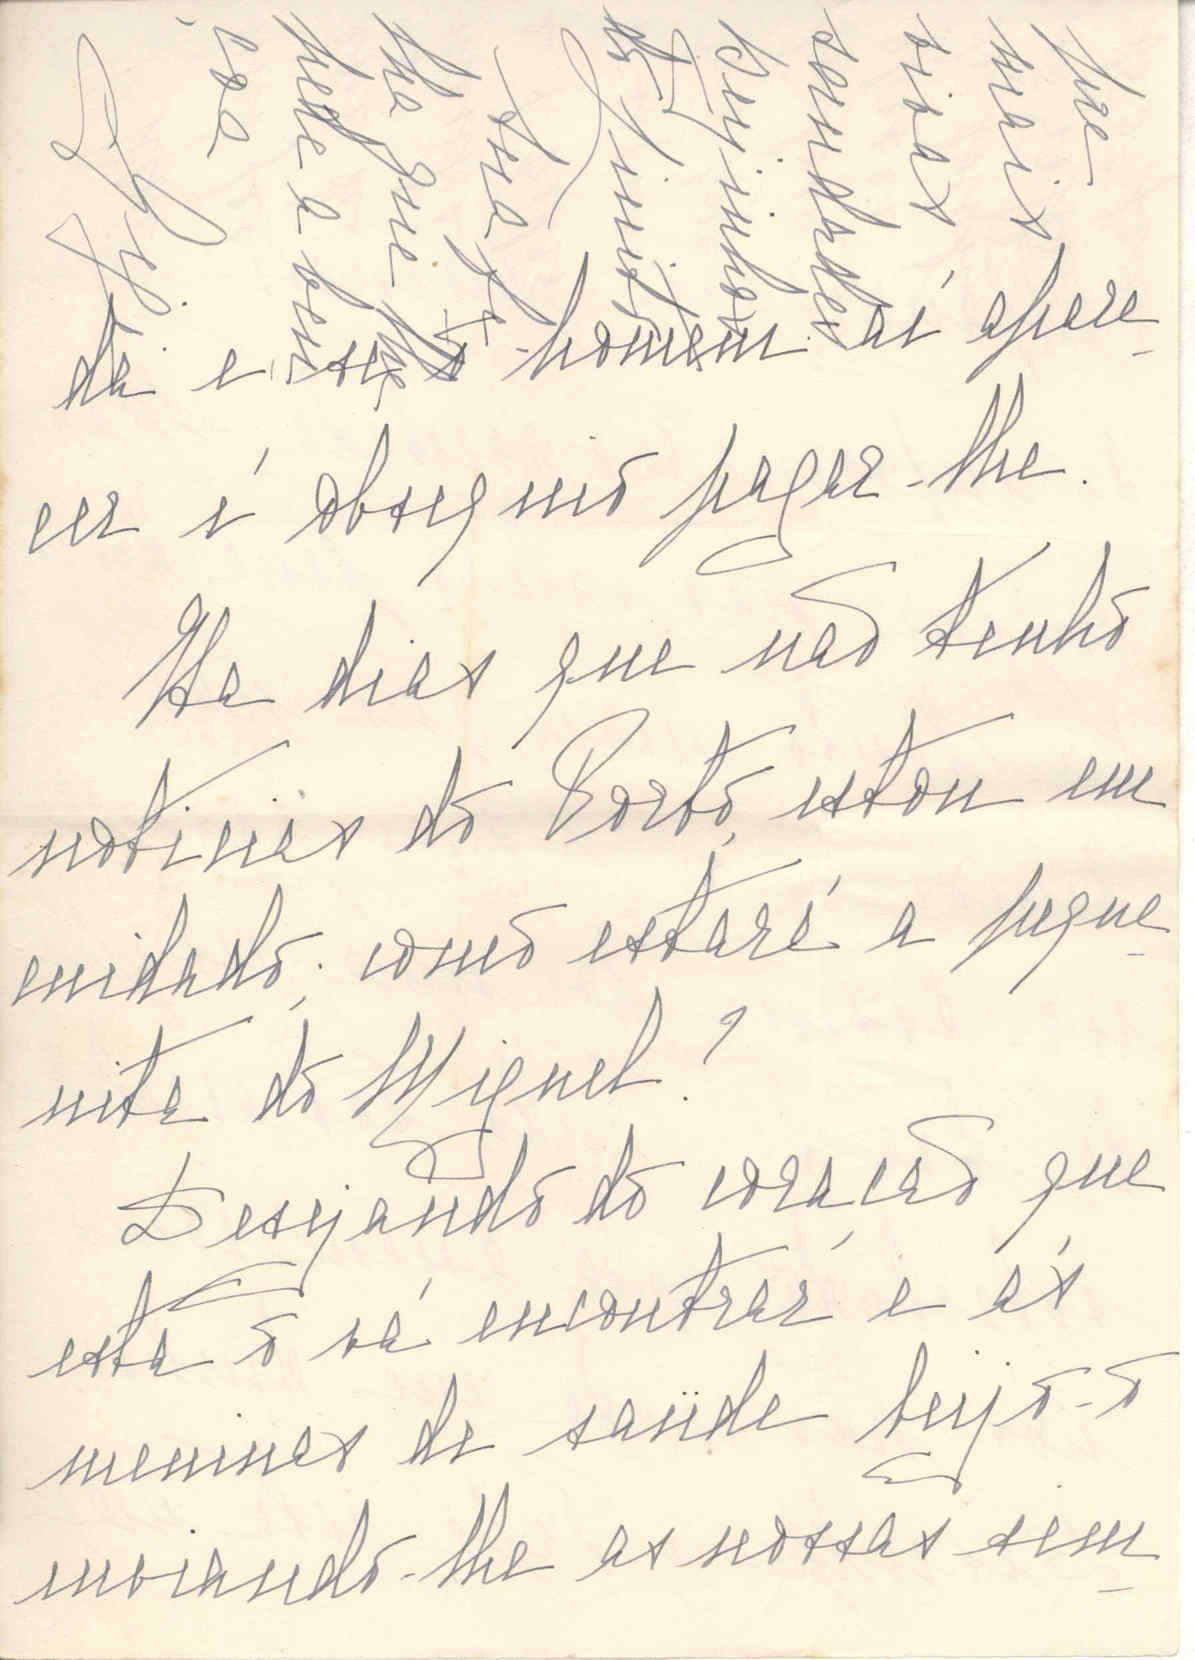 da e se o homem aí apare-
cer é obsequio pagar-lhe.
Ha dias que não tenho
noticias do Porto, estou em
cuidado; como estará a peque-
nita do Miguel?
Desejando do coração que
esta o vá encontrar e ás
meninas de saude beijo-o
inviando-lhe as nossas sem-
pre
mais
vivas
saudades
Beijinhos
do Quinito
sua
ha que lhe
pede a ben-
ção